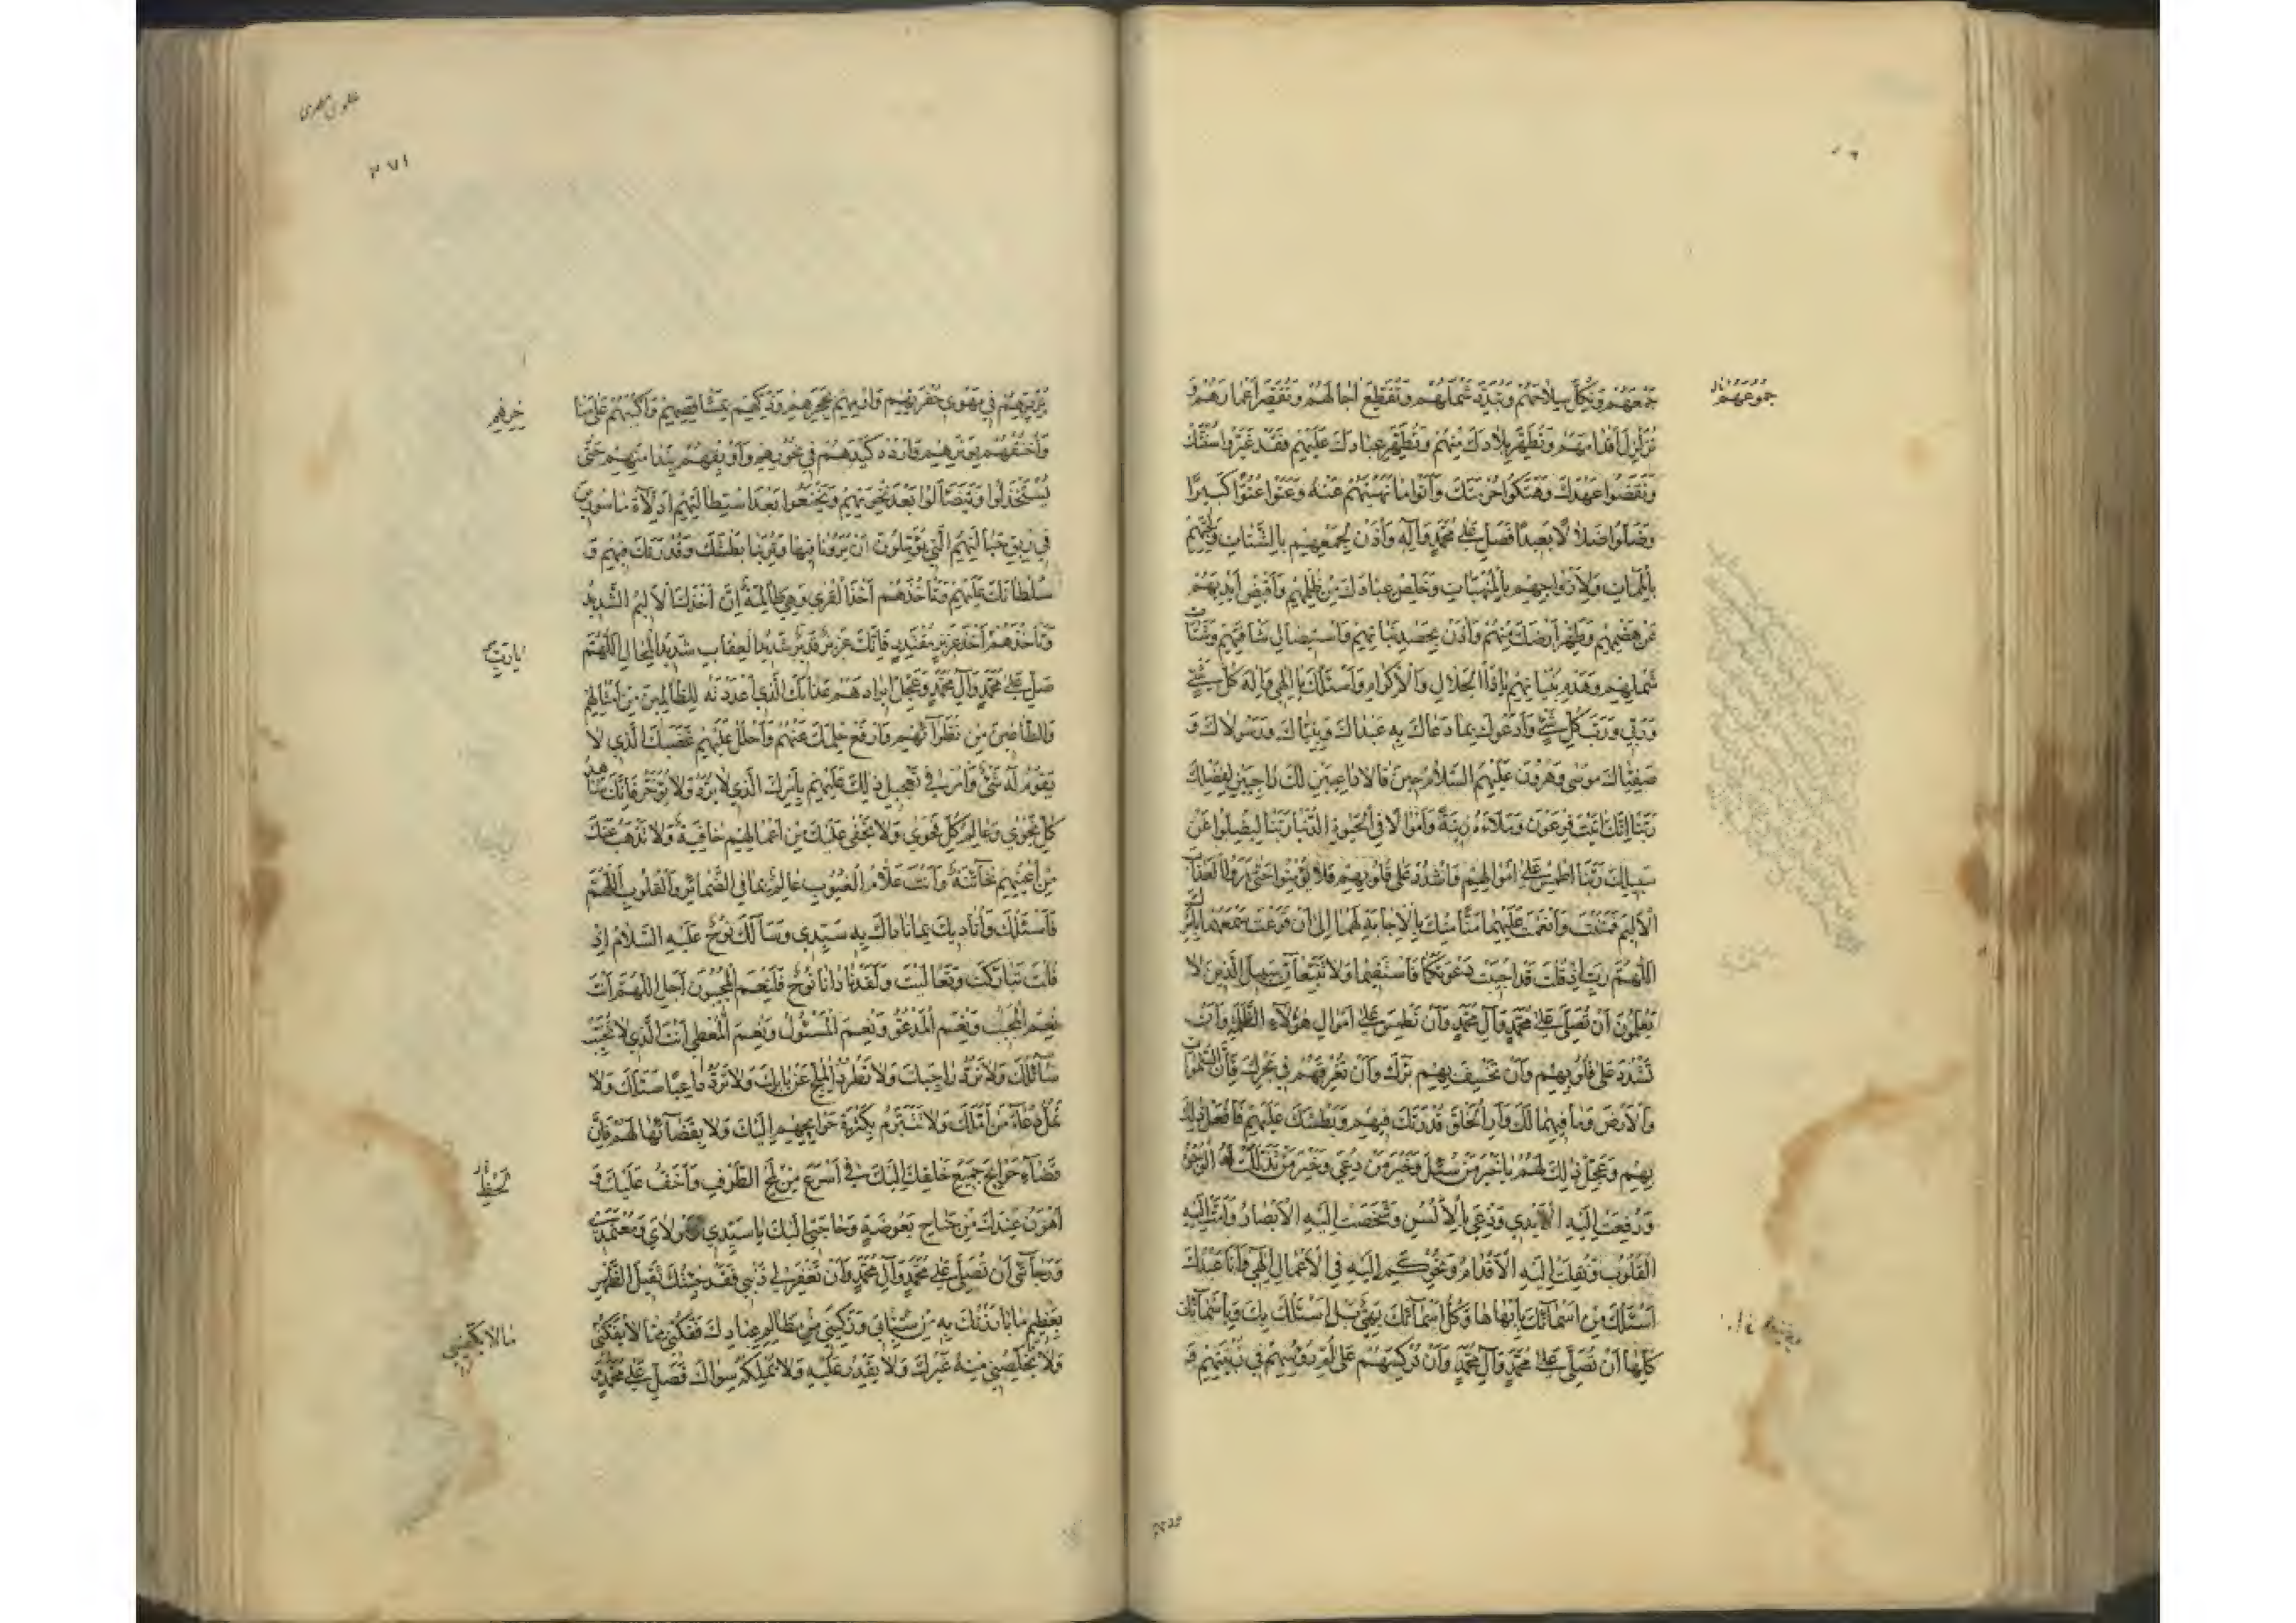 جَمْعَهُمْ وَتُكِلَّ سِلَاحَهُمْ وَتُبَدِّدَ شَمْلَهُمْ وَتُقَطِّعَ اٰجَالَهُمْ وَتُقَصِّرَ اَعْمَارَهُمْ وَ
تُزَلْزِلَ اَقْدَامَهُمْ وَتُطَهِّرَ بِلَادَكَ مِنْهُمْ وَتُظْهِرَ عِبَادَكَ عَلَيْهِمْ فَقَدْ غَيَّرُوا سُنَّتَكَ
وَنَقَضُوا عَهْدَكَ وَهَتَكُوا حُرْمَتَكَ وَاَتَوْا مَا نَهَيْتَهُمْ عَنْهُ وَعَتَوْا عُتُوًّا كَبِيرًا
وَضَلُّوا ضَلَالًا بَعِيدًا فَصَلِّ عَلٰى مُحَمَّدٍ وَاٰلِهِ وَأْذَنْ لِجَمْعِهِمْ بِالشَّتَاتِ وَلِحَيِّهِمْ
بِالْمَمَاتِ وَلِاَزْوَاجِهِمْ بِالنَّهَبَاتِ وَخَلِّصْ عِبَادَكَ مِنْ ظُلْمِهِمْ وَاقْبِضْ اَيْدِيَهُمْ
عَنْ هَضْمِهِمْ وَطَهِّرْ اَرْضَكَ مِنْهُمْ وَأْذَنْ بِحَصْدِ نَبَاتِهِمْ وَاسْتِيصَالِ شَافَتِهِمْ وَشَتَاتِ
شَمْلِهِمْ وَهَدْمِ بُنْيَانِهِمْ يَا ذَا الْجَلَالِ وَالْاِكْرَامِ وَاَسْئَلُكَ يَا اِلٰهِي وَاِلٰهَ كُلِّ شَيْءٍ
وَرَبِّي وَرَبَّ كُلِّ شَيْءٍ وَاَدْعُوكَ بِمَا دَعَاكَ بِهِ عَبْدَاكَ وَنَبِيَّاكَ وَرَسُولَاكَ وَ
صَفِيَّاكَ مُوسٰى وَهٰرُونُ عَلَيْهِمَ السَّلَامُ حِينَ قَالَا دَاعِيَيْنِ لَكَ رَاجِيَيْنِ لِفَضْلِكَ
رَبَّنَا اِنَّكَ اٰتَيْتَ فِرْعَوْنَ وَمَلَاءَهُ زِينَةً وَاَمْوَالًا فِي الْحَيٰوةِ الدُّنْيَا رَبَّنَا لِيُضِلُّوا عَنْ
سَبِيلِكَ رَبَّنَا اطْمِسْ عَلٰى اَمْوَالِهِمْ وَاشْدُدْ عَلٰى قُلُوبِهِمْ فَلَا يُؤْمِنُوا حَتّٰى يَرَوُا الْعَذَابَ
الْاَلِيمَ فَمَنَنْتَ وَاَنْعَمْتَ عَلَيْهِمَا مَنًّا مِنْكَ بِالْاِجَابَةِ لَهُمَا اِلٰى اَنْ قَرَعْتَ سَمْعَهُمَا بِاَمْرِكَ
اللّٰهُمَّ رَبِّ اِذْ قُلْتَ قَدْ اُجِيبَتْ دَعْوَتُكُمَا فَاسْتَقِيمَا وَلَا تَتَّبِعَانِّ سَبِيلَ الَّذِينَ لَا
يَعْلَمُونَ اَنْ تُصَلِّيَ عَلٰى مُحَمَّدٍ وَاٰلِ مُحَمَّدٍ وَاَنْ تَطْمِسَ عَلٰى اَمْوَالِ هٰؤُلَاءِ الظَّلَمَةِ وَاَنْ
تَشْدُدَ عَلٰى قُلُوبِهِمْ وَاَنْ تَخْسِفَ بِهِمْ بَرَّكَ وَاَنْ تُغْرِقَهُمْ فِي بَحْرِكَ فَاِنَّ السَّمٰوَاتِ
وَالْاَرْضَ وَمَا فِيهِمَا لَكَ وَاَرِ الْخَلْقَ قُدْرَتَكَ فِيهِمْ وَبَطْشَكَ عَلَيْهِمْ فَافْعَلْ ذٰلِكَ
بِهِمْ وَعَجِّلْ ذٰلِكَ لَهُمْ يَا خَيْرَ مَنْ سُئِلَ وَخَيْرَ مَنْ دُعِيَ وَخَيْرَ مَنْ تَذَلَّلَتْ لَهُ الْوُجُوهُ
وَرُفِعَتْ اِلَيْهِ الْاَيْدِي وَدُعِيَ بِالْاَلْسُنِ وَشَخَصَتْ اِلَيْهِ الْاَبْصَارُ وَاَمَّتْ اِلَيْهِ
الْقُلُوبُ وَنُقِلَتْ اِلَيْهِ الْاَقْدَامُ وَتُحُوكِمَ اِلَيْهِ فِي الْاَعْمَالِ اِلٰهِي وَاَنَا عَبْدُكَ
اَسْئَلُكَ مِنْ اَسْمَائِكَ بِاَبْهَاهَا وَكُلُّ اَسْمَائِكَ بَهِيٌّ بَلْ اَسْئَلُكَ بِكَ وَبِاَسْمَائِكَ
كُلِّهَا اَنْ تُصَلِّيَ عَلٰى مُحَمَّدٍ وَاٰلِ مُحَمَّدٍ وَاَنْ تُرْكِسَهُمْ عَلٰى اُمِّ رُؤُسِهِمْ فِي زُبْيَتِهِمْ وَ
جُمُوعَهُمْ
علوی مصری
تُرْدِيَهُمْ فِي مَهْوٰى حُفْرَتِهِمْ وَارْمِهِمْ بِحَجَرِهِمْ وَذَكِّهِمْ بِمَشَاقِصِهِمْ وَاكْبُبْهُمْ عَلٰى مَنَاخِرِهِمْ
وَاخْنُقْهُمْ بِوَتَرِهِمْ وَارْدُدْ كَيْدَهُمْ فِي نُحُورِهِمْ وَاَوْبِقْهُمْ بِنَدَامَتِهِمْ حَتّٰى
يَسْتَخْذِلُوا وَيَتَضَاءَلُوا بَعْدَ نِخْوَتِهِمْ وَيَخْشَعُوا بَعْدَ اسْتِطَالَتِهِمْ اَذِلَّاءَ مَاسُورِينَ
فِي رِبَقِ حَبَائِلِهِمُ الَّتِي يُؤَمِّلُونَ اَنْ يَرَوْنَا فِيهَا وَتُرِيَنَا بَطْشَكَ وَقُدْرَتَكَ فِيهِمْ وَ
سُلْطَانَكَ عَلَيْهِمْ وَتَأْخُذَهُمْ اَخْذَ الْقُرٰى وَهِيَ ظَالِمَةٌ اِنَّ اَخْذَكَ الْاَلِيمُ الشَّدِيدُ
وَتَأْخُذَهُمْ اَخْذَ عَزِيزٍ مُقْتَدِرٍ فَاِنَّكَ عَزِيزٌ قَدِيرٌ شَدِيدُ الْعِقَابِ شَدِيدُ الْمِحَالِ اللّٰهُمَّ
يَا رَبِّ
صَلِّ عَلٰى مُحَمَّدٍ وَاٰلِ مُحَمَّدٍ وَعَجِّلْ اِيرَادَهُمْ عَذَابَكَ الَّذِي اَعْدَدْتَهُ لِلظَّالِمِينَ مِنْ اَمْثَالِهِمْ
وَالطَّاغِينَ مِنْ نُظَرَائِهِمْ وَارْفَعْ حِلْمَكَ عَنْهُمْ وَاحْلُلْ عَلَيْهِمْ غَضَبَكَ الَّذِي لَا
يَقُومُ لَهُ شَيْءٌ وَأْمُرْ فِي تَعْجِيلِ ذٰلِكَ عَلَيْهِمْ بِاَمْرِكَ الَّذِي لَا يُرَدُّ وَلَا يُؤَخَّرُ فَاِنَّكَ شَاهِدُ
كُلِّ نَجْوٰى وَعَالِمُ كُلِّ فَحْوٰى وَلَا تَخْفٰى عَلَيْكَ مِنْ اَعْمَالِهِمْ خَافِيَةٌ وَلَا تَذْهَبُ عَنْكَ
مِنْ اَعْيُنِهِمْ خَائِنَةٌ وَاَنْتَ عَلَّامُ الْغُيُوبِ عَالِمٌ بِمَا فِي الضَّمَائِرِ وَالْقُلُوبِ اَللّٰهُمَّ
فَاَسْئَلُكَ وَاُنَادِيكَ بِمَا نَادَاكَ بِهِ سَيِّدِي وَسَاَلَكَ نُوحٌ عَلَيْهِ السَّلَامُ اِذْ
قُلْتَ تَبَارَكْتَ وَتَعَالَيْتَ وَلَقَدْ نَادَانَا نُوحٌ فَلَنِعْمَ الْمُجِيبُونَ اَجَلِ اللّٰهُمَّ اَنْتَ
نِعْمَ الْمُجِيبُ وَنِعْمَ الْمَدْعُوُّ وَنِعْمَ الْمَسْئُولُ وَنِعْمَ الْمُعْطِي اَنْتَ الَّذِي لَا تُخَيِّبُ
سَائِلَكَ وَلَا تَرُدُّ رَاجِيَكَ وَلَا تَطْرُدُ الْمُلِحَّ عَنْ بَابِكَ وَلَا تَرُدُّ دُعَاءَ سَائِلِكَ وَلَا
تَمَلُّ دُعَاءَ مَنْ اَمَّلَكَ وَلَا تَتَبَرَّمُ بِكَثْرَةِ حَوَائِجِهِمْ اِلَيْكَ وَلَا بِقَضَائِهَا لَهُمْ فَاِنَّ
قَضَاءَ حَوَائِجِ جَمِيعِ خَلْقِكَ اِلَيْكَ فِي اَسْرَعِ مِنْ لَمْحِ الطَّرْفِ وَاَخَفُّ عَلَيْكَ وَ
لَحْظِ
اَهْوَنُ عِنْدَكَ مِنْ جَنَاحِ بَعُوضَةٍ وَحَاجَتِي اِلَيْكَ يَا سَيِّدِي وَمَوْلَايَ وَمُعْتَمَدِي
وَرَجَائِي اَنْ تُصَلِّيَ عَلٰى مُحَمَّدٍ وَاٰلِ مُحَمَّدٍ وَاَنْ تَغْفِرَ لِي ذَنْبِي فَقَدْ جِئْتُكَ ثَقِيلَ الظَّهْرِ
بِعَظِيمِ مَا بَارَزْتُكَ بِهِ مِنْ سَيِّئَاتِي وَرَكِبَنِي مِنْ مَظَالِمِ عِبَادِكَ فَفُكَّنِي مِمَّا لَا يَفُكُّنِي
وَلَا يُخَلِّصُنِي مِنْهُ غَيْرُكَ وَلَا يَقْدِرُ عَلَيْهِ وَلَا يَمْلِكُهُ سِوَاكَ فَصَلِّ عَلٰى مُحَمَّدٍ وَ